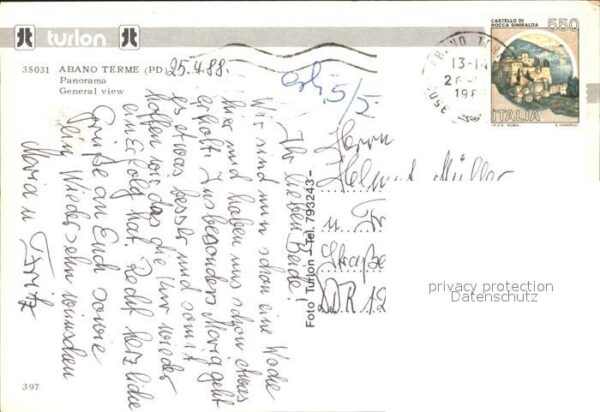 turlon
35031 ABANO TERME (PD)
Panorama
General view
25.4.88.
erh. 5/5
Ihr lieben Beide!
Wir sind nun schon eine Woche
hier und haben uns schon etwas
erholt. Insbesonders Maria geht
es etwas besser und somit
hoffen wir das die Kur wieder
ein Erfolg hat. Recht herzliche
Grüße an Euch sowie
ein Wiedersehn wünschen
Maria u. Fritz
Foto Turlon - Tel. 793243-
CASTELLO DI
ROCCA SINIBALDA
550
ITALIA
I.P.Z.S. ROMA
13-14
26
198
Herrn
Helmut Müller
u. Fr
Straße
DDR 12
privacy protection
Datenschutz
397